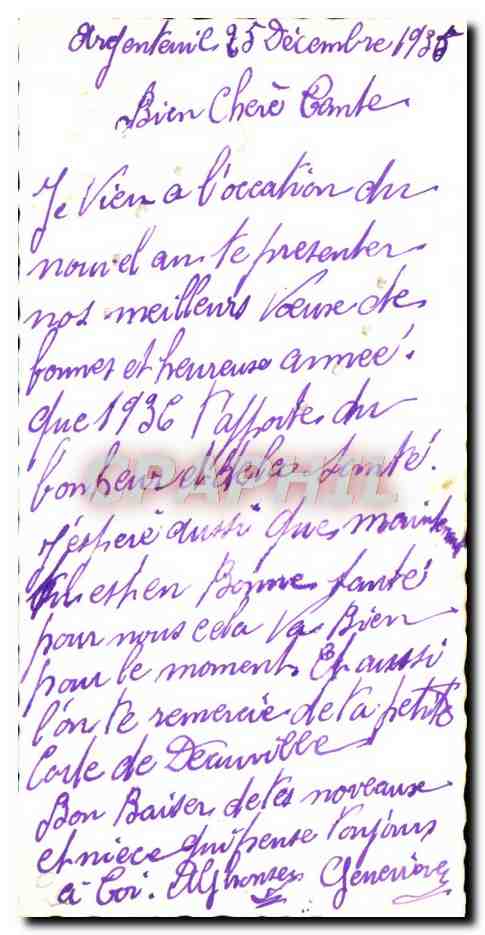 Argenteuil 25 Décembre 1935
Bien Cheré Tante
Je Vien a l'occation du
nouvel an te presenter
nos meilleurs Voeux de
bonnes et heureuse année.
que 1936 t'apportes du
bonheur et de la santé.
J'espere aussi que maintenant
est en Bonne santé
pour nous cela va Bien
pour le moment. Et aussi
l'on te remercie de ta petite
Carte de Deauville
Bon Baiser de tes noveaux
et niece qui pense toujours
à toi. Alphonse Genevieve
CPAPHIL